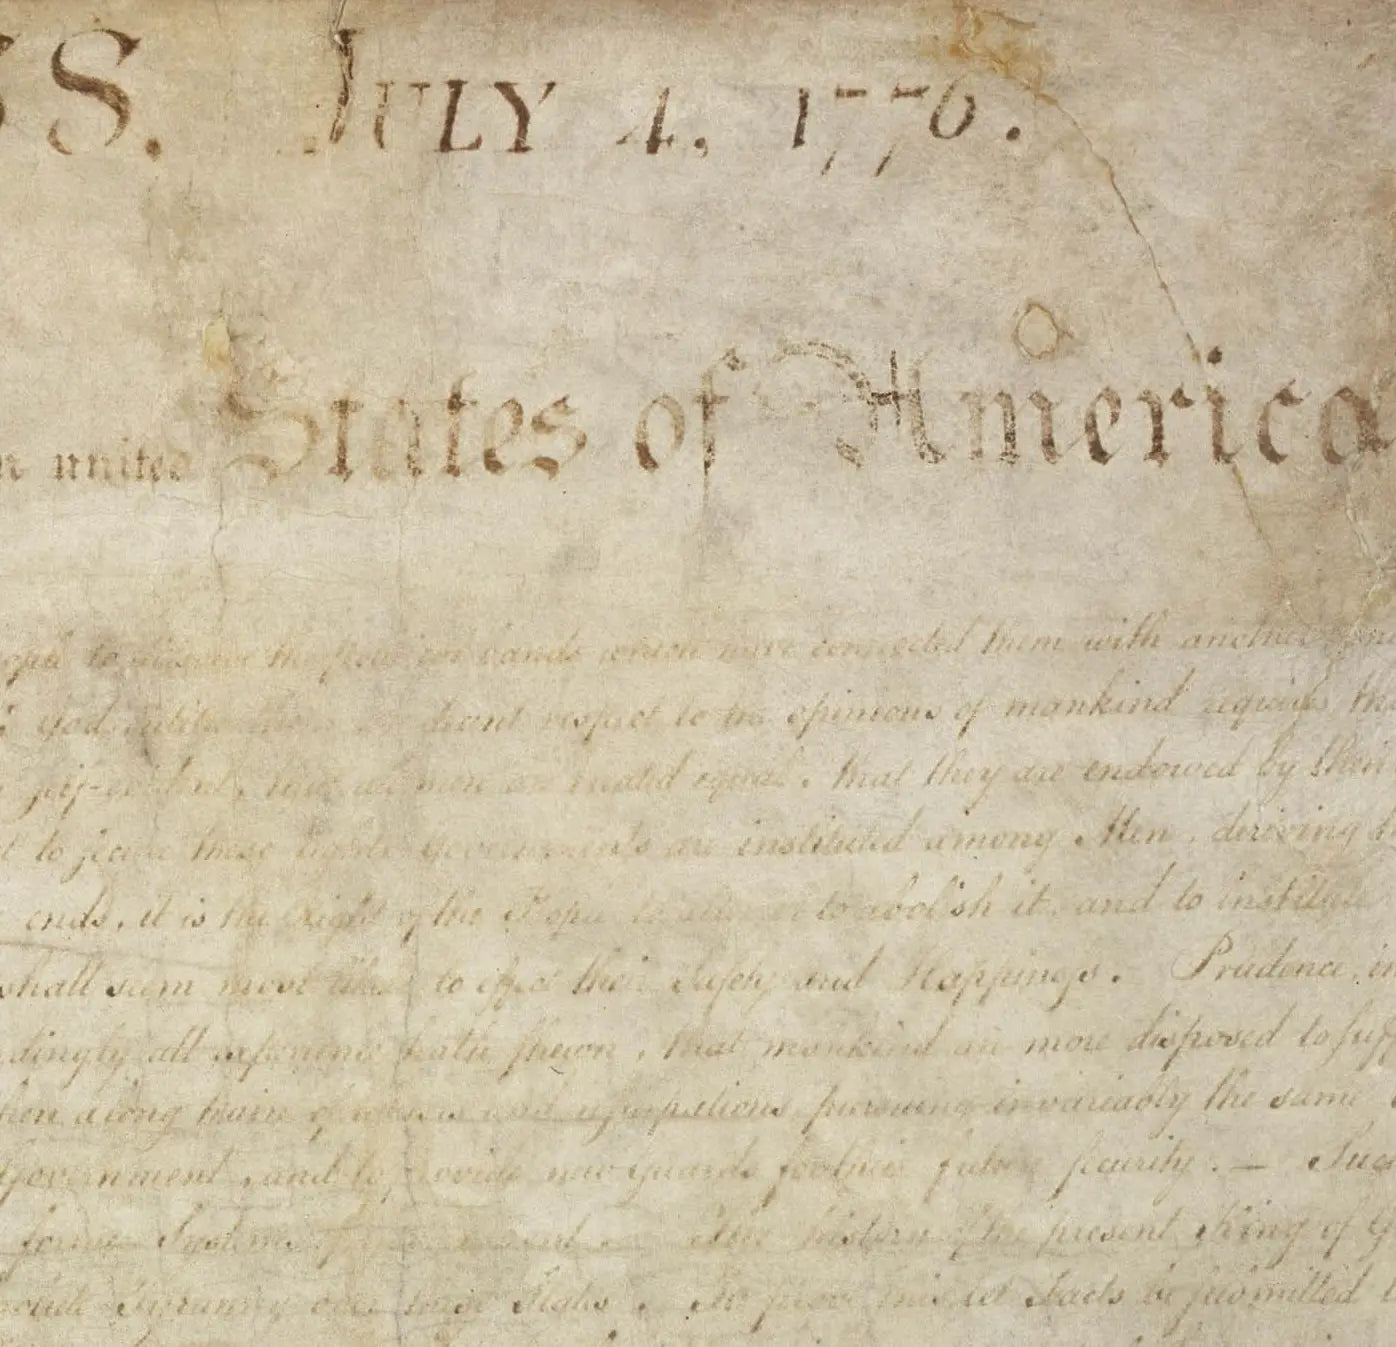 S. JULY 4, 1776.
united States of America
to dissolve the political bands which have connected them with another, and
God entitle them a decent respect to the opinions of mankind requires tha
self-evident, that all men are created equal, that they are endowed by their
to secure these rights, Governments are instituted among Men, deriving
ends, it is the Right of the People to alter or to abolish it, and to institute
shall seem most likely to effect their Safety and Happiness. Prudence, in
dingly all experience hath shewn, that mankind are more disposed to suff
hen a long train of abuses and usurpations, pursuing invariably the same
Government, and to provide new Guards for their future security. — Suc
former Systems of Government. The history of the present King of G
Tyranny over these States. To prove this, let Facts be submitted